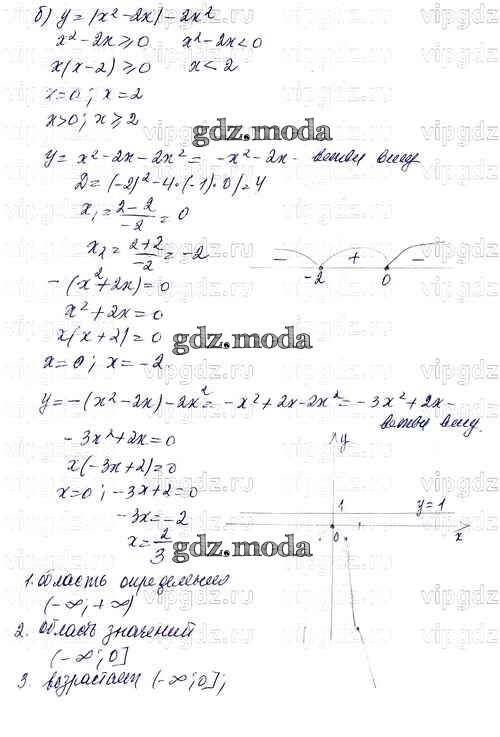 б) y = |x² - 2x| - 2x²
x² - 2x ≥ 0    x² - 2x < 0
x(x-2) ≥ 0    x < 2
x = 0; x = 2
x > 0; x ≥ 2
gdz.moda
y = x² - 2x - 2x² = -x² - 2x - ветви вниз
D = (-2)² - 4·(-1)·0 = 4
x₁ = (2-2)/-2 = 0
x₂ = (2+2)/-2 = -2
- + -
-2 0
-(x² + 2x) = 0
x² + 2x = 0
x(x+2) = 0
gdz.moda
x = 0; x = -2
y = -(x² - 2x) - 2x² = -x² + 2x - 2x² = -3x² + 2x -
ветви вниз.
-3x² + 2x = 0
x(-3x + 2) = 0
x = 0; -3x + 2 = 0
-3x = -2
x = 2/3
y
1 y = 1
0 x
gdz.moda
1. область определения
(-∞; +∞)
2. область значений
(-∞; 0]
3. возрастает (-∞; 0];
vipgdz.ru